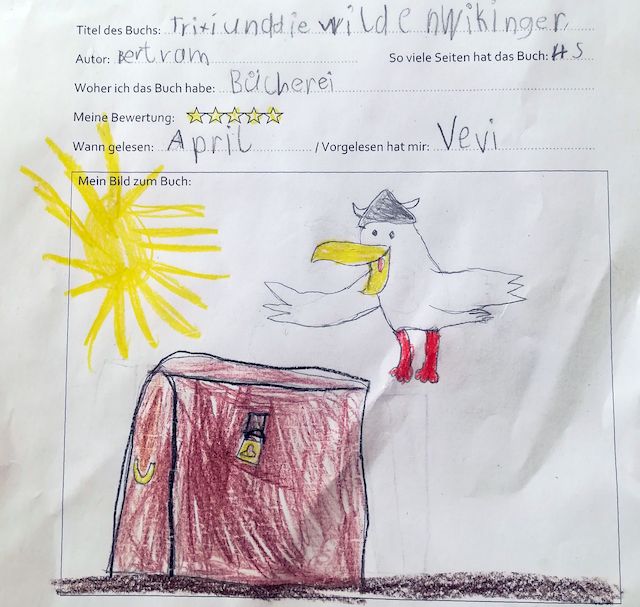 Titel des Buchs: Trixi und die wilden Wikinger
Autor: Bertram So viele Seiten hat das Buch: 45
Woher ich das Buch habe: Bücherei
Meine Bewertung: ☆☆☆☆☆
Wann gelesen: April / Vorgelesen hat mir: Vevi
Mein Bild zum Buch: